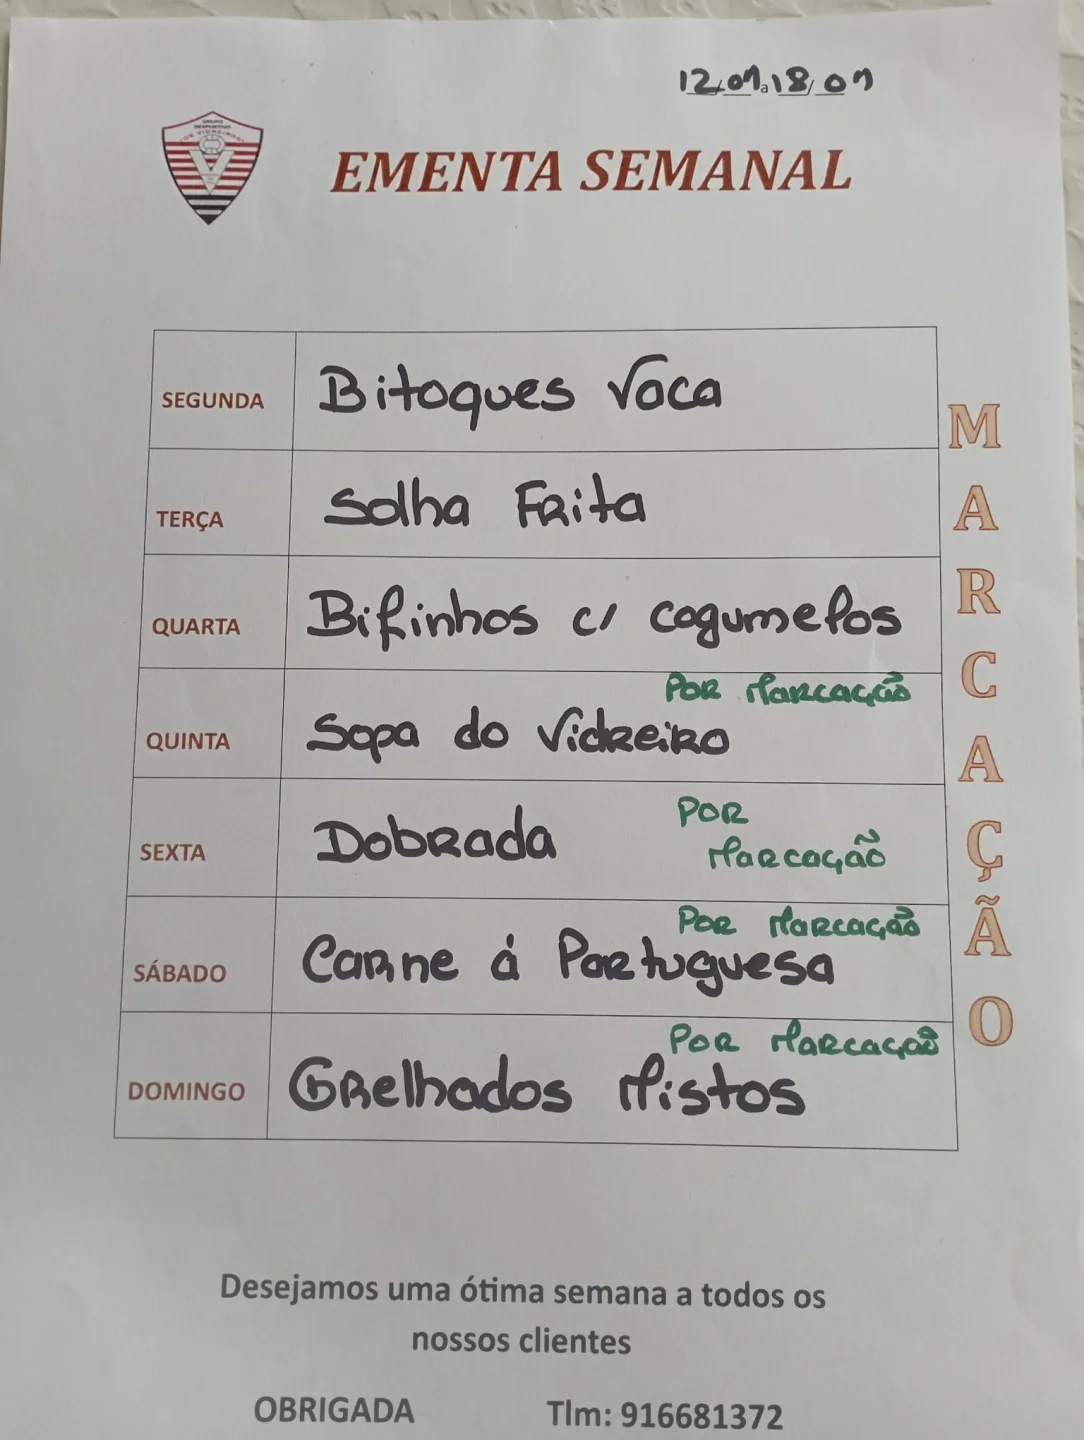 12/01 a 18/01
GRUPO
DESPORTIVO
"OS VIDREIROS"
EMENTA SEMANAL
SEGUNDA Bitoques Vaca
TERÇA Solha Frita
QUARTA Bifinhos c/ cogumelos
QUINTA Sopa do Vidreiro Por Marcação
SEXTA Dobrada Por
Marcação
SÁBADO Carne á Portuguesa Por Marcação
DOMINGO Grelhados Mistos Por Marcação
MARCAÇÃO
Desejamos uma ótima semana a todos os
nossos clientes
OBRIGADA Tlm: 916681372